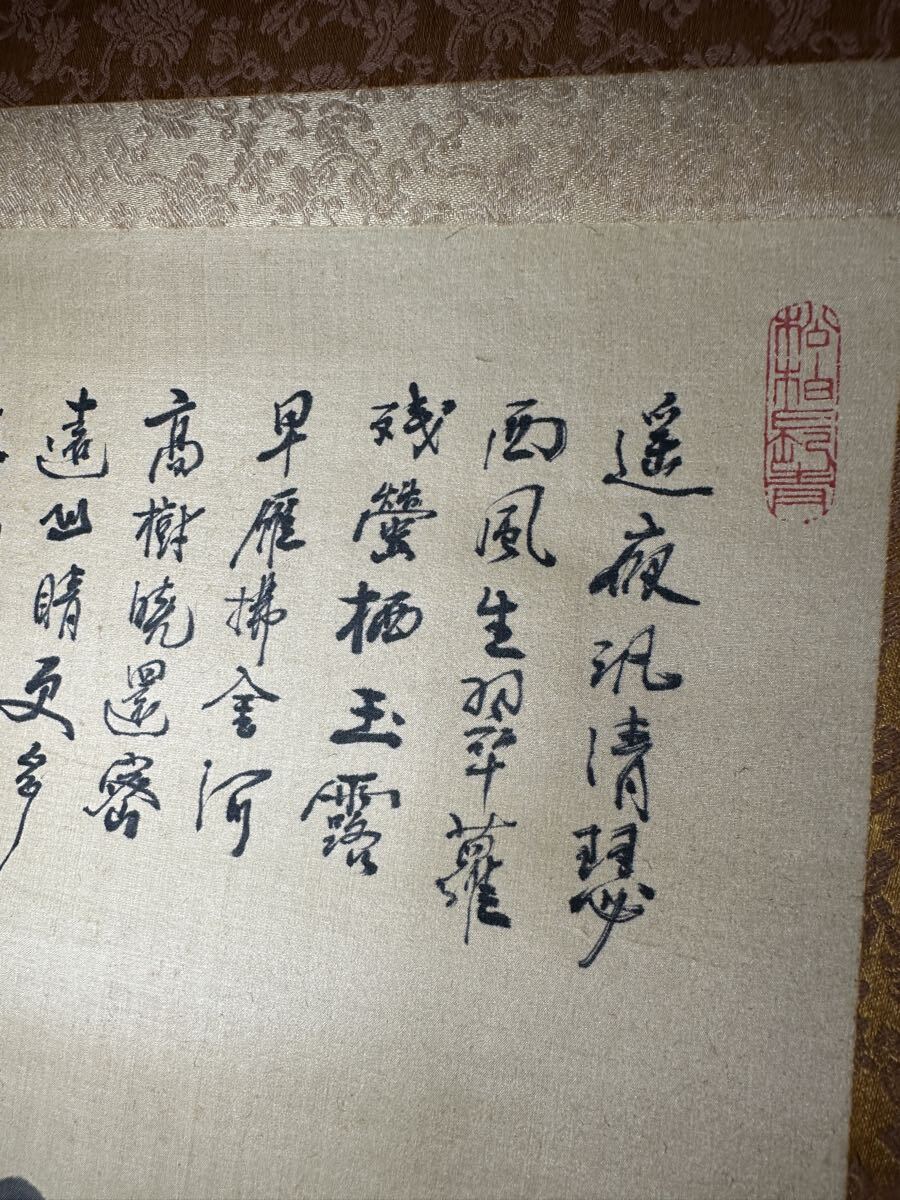 松柏長青
遥夜汎清瑟
西風生翠蘿
残螢栖玉露
早雁拂金河
高樹晓還密
遠山晴更多